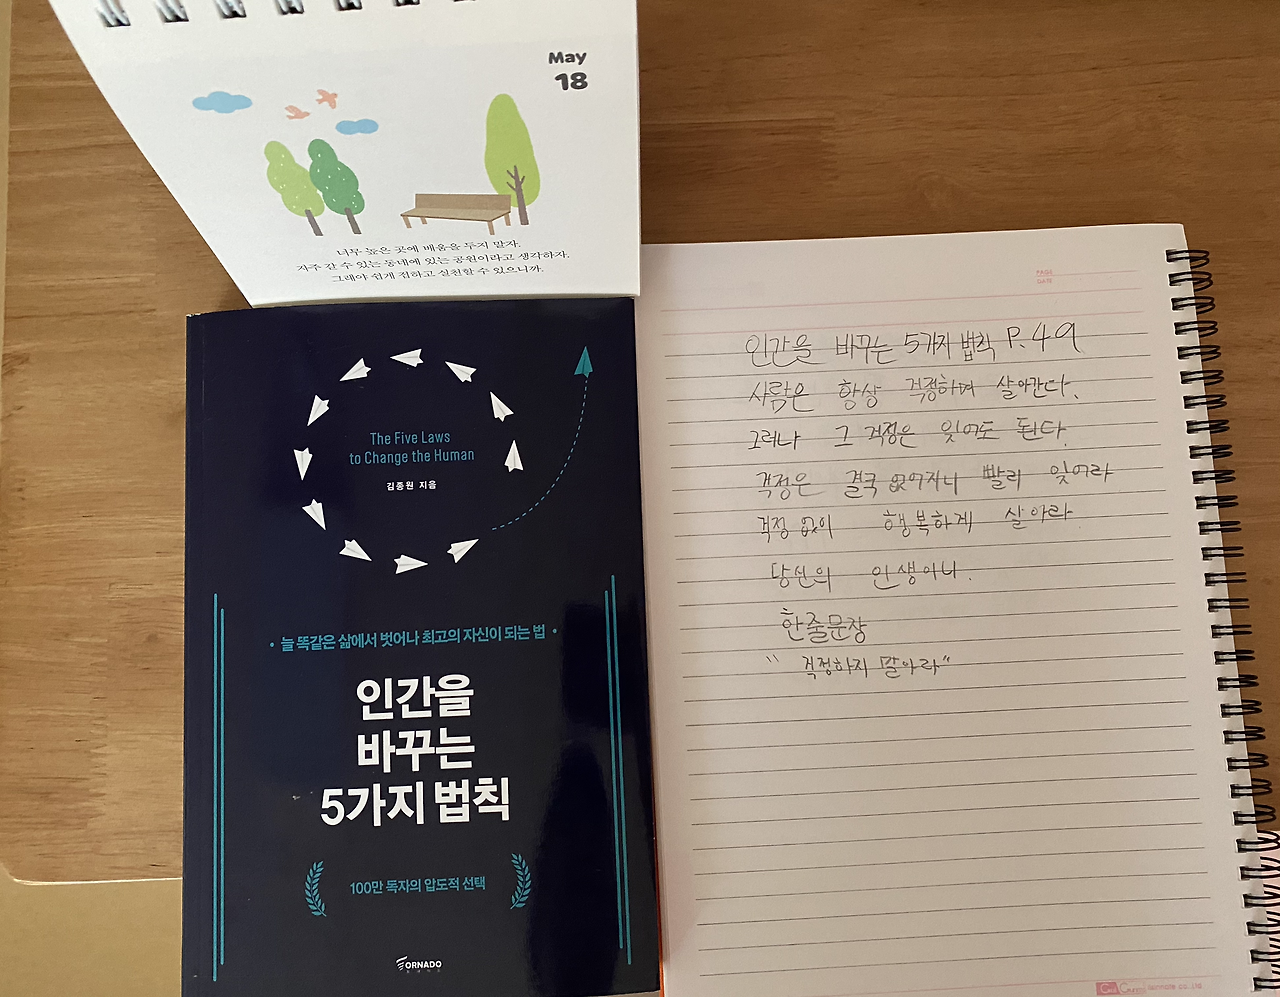 May
18
너무 높은 곳에 배움을 두지 말자.
자주 갈 수 있는 동네에 있는 공원이라고 생각하자.
그래야 쉽게 접하고 실천할 수 있으니까.
The Five Laws
to Change the Human
김종원 지음
• 늘 똑같은 삶에서 벗어나 최고의 자신이 되는 법 •
인간을
바꾸는
5가지 법칙
100만 독자의 압도적 선택
TORNADO
PAGE
DATE
인간을 바꾸는 5가지 법칙 P. 49
사람은 항상 걱정하며 살아간다.
그러나 그 걱정은 잊어도 된다.
걱정은 결국 없어지니 빨리 잊어라
걱정 없이 행복하게 살아라
당신의 인생이니.
한줄문장
"걱정하지 말아라"